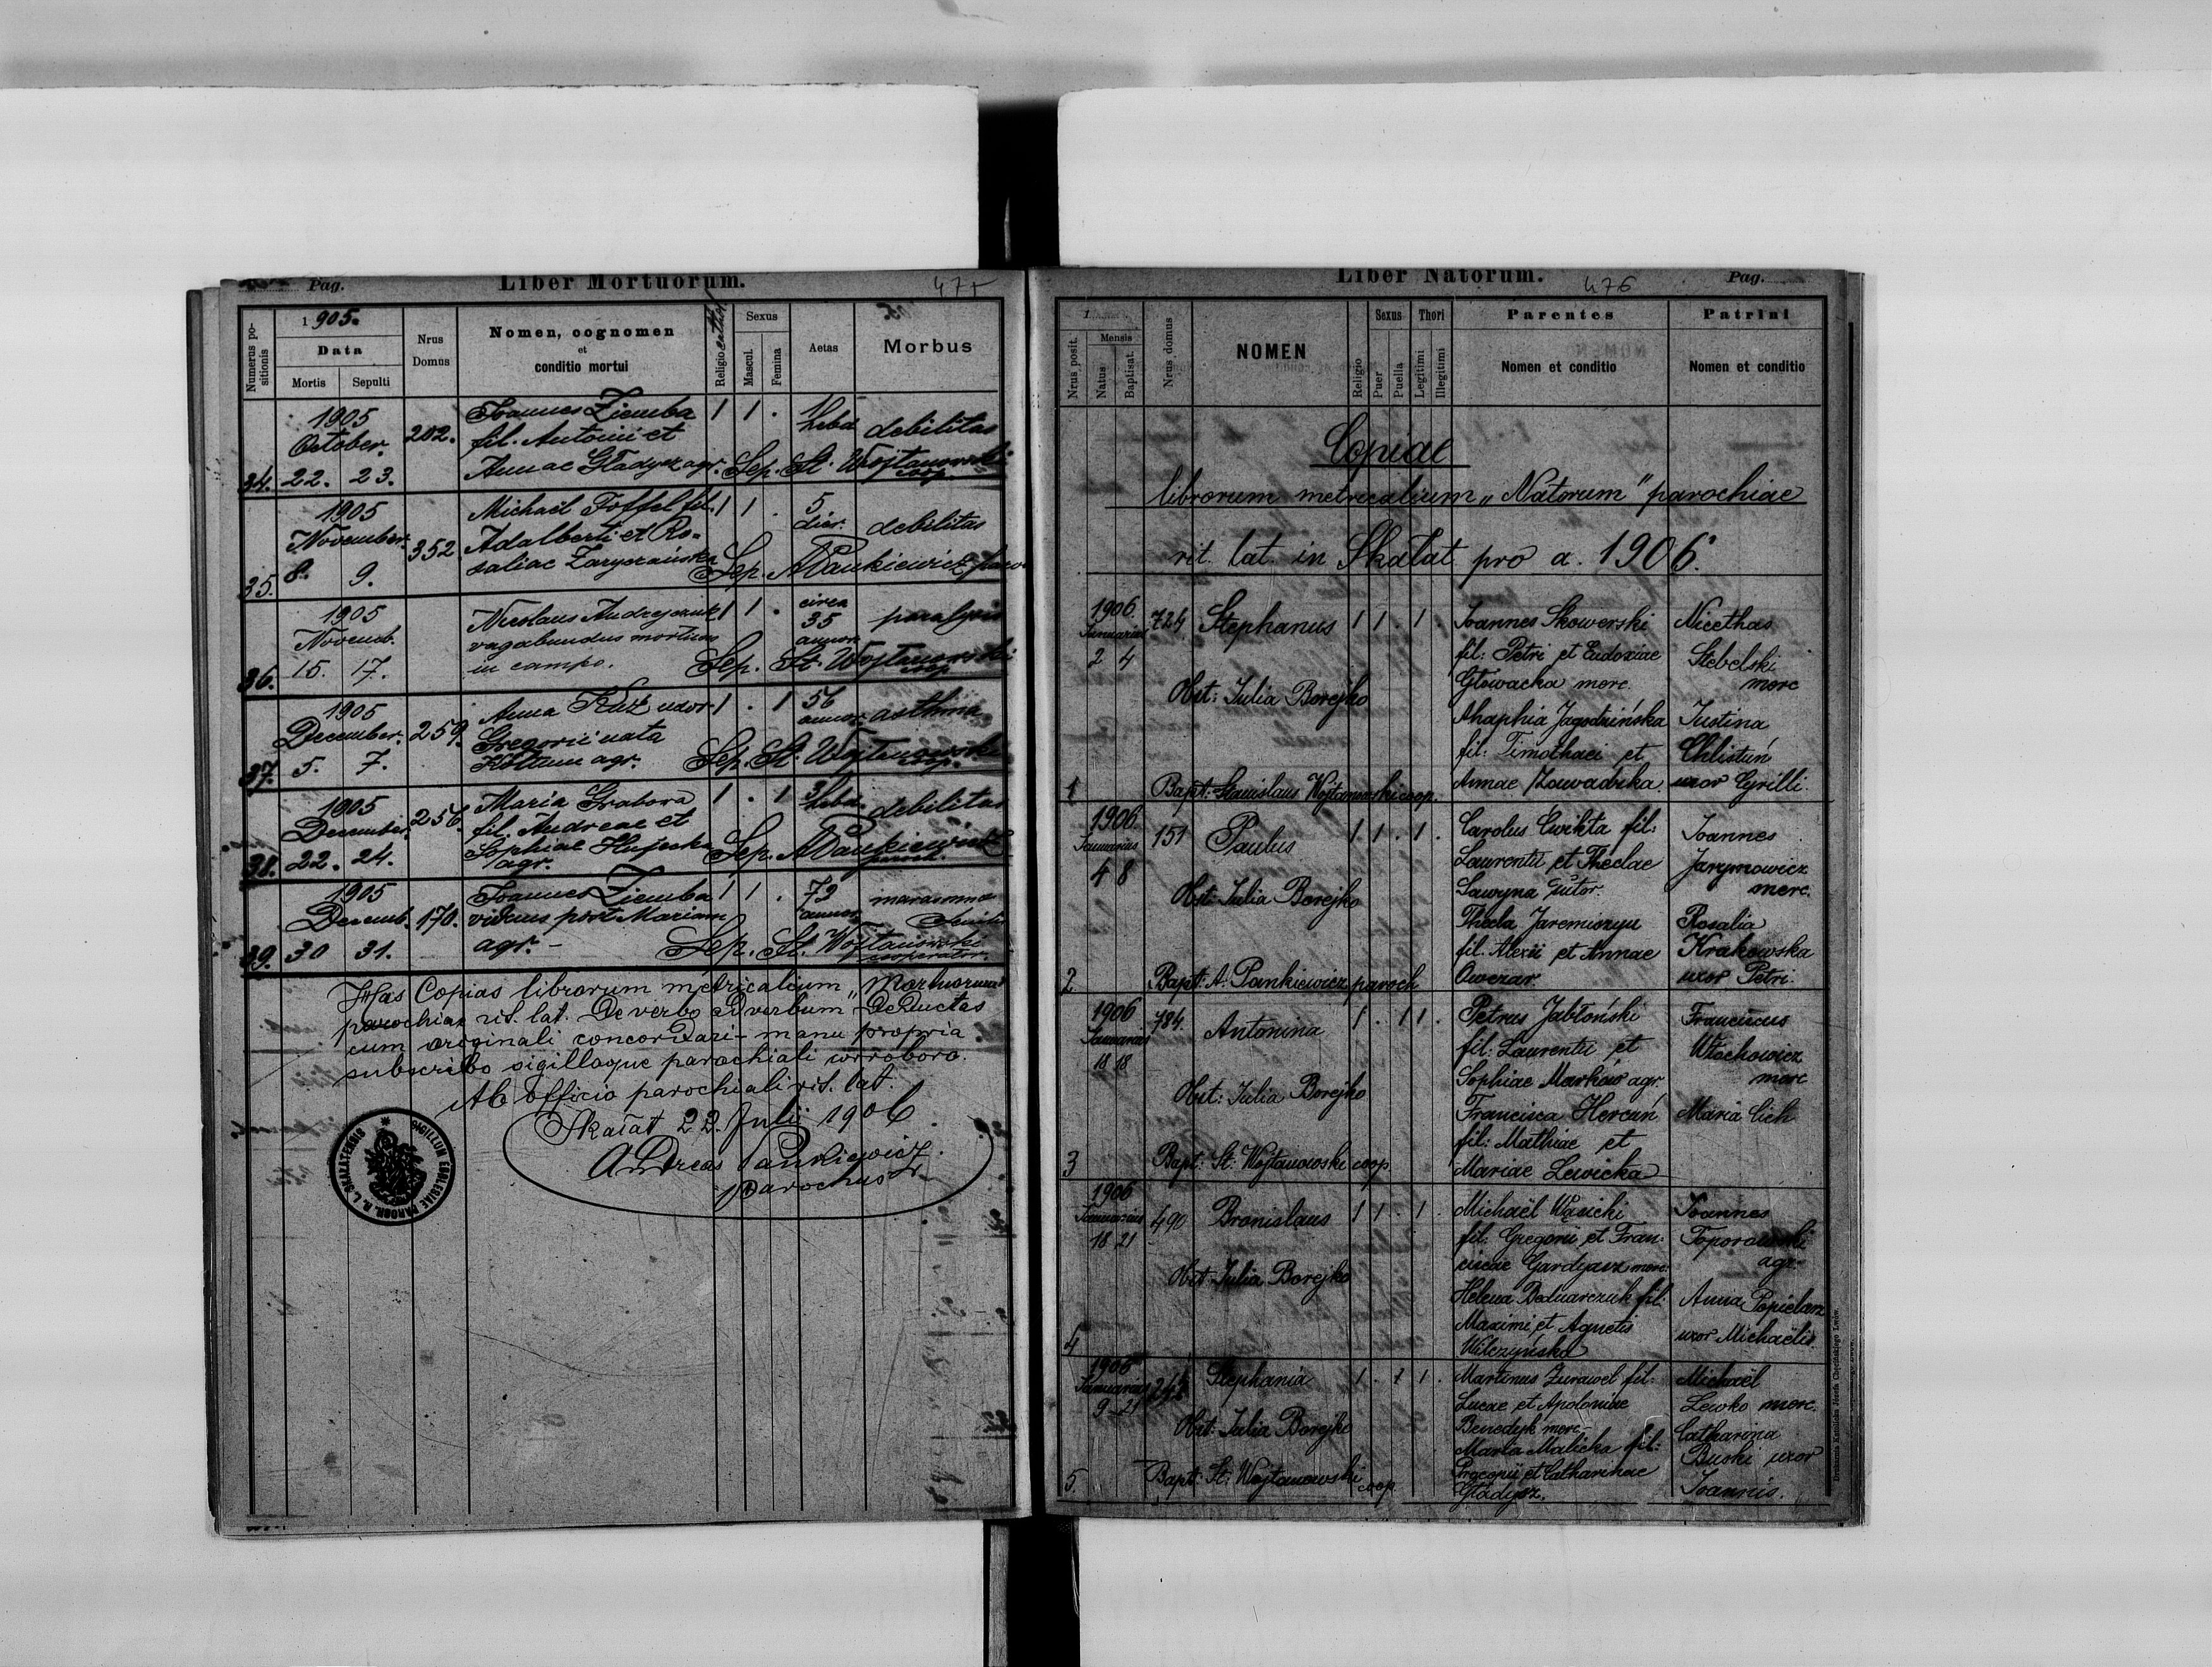 Pag.
Liber Mortuorum.
475
Numerus positionis
1905.
Data
Mortis
Sepulti
Nrus Domus
Nomen, cognomen
et
conditio mortui
Religio
Sexus
Mascul.
Femina
Aetas
Morbus
34.
1905
October.
22. 23.
202.
Joannes Ziemba
fil. Antonii et
Annae Gładysz agr.
1 1 .
hebd.
debilitas
Sep. St. Wojtanowski
coop.
35.
1905
November.
8. 9.
352
Michaël Toffel fil.
Adalberti et Ro-
saliae Zaryczańska
1 1 .
5
dier.
debilitas
Sep. A Pankiewicz, paroch
36.
1905
Novemb.
15. 17.
Nicolaus Andrejczuk
vagabundus mortuus
in campo.
1 1 .
circa
35
annor.
paralysis
Sep. St. Wojtanowski
coop.
37.
1905
December.
5. 7.
259.
Anna Kuź uxor
Gregorii nata
Kołtun agr.
1 . 1
56
annor.
asthma
Sep. St. Wojtanowski
coop.
38.
1905
December.
22. 24.
256.
Maria Grabora
fil. Andreae et
Sophiae
agr.
1 . 1
3
hebd.
debilitas
Sep. A Pankiewicz
paroch.
39.
1905
Decemb.
30 31.
170.
Joannes Ziemba
viduus post Mariam
agr. -
1 1 .
73
annor.
marasmus
Senilis
Sep. St. Wojtanowski
cooperator.
Has Copias librorum metricalium „Mortuorum"
parochiae rit. lat. De verbo ad verbum Deductas
cum originali concordari - manu propria
subscribo sigilloque parochiali corroboro.
Ab officio parochiali rit. lat.
Skałat 22. Julii 1906
Andreas Pankiewicz
parochus
SIGILLUM ECCLESIAE PAROCH. R. L. SKALATENSIS
Liber Natorum.
476
Pag.
Nrus posit.
1
Mensis
Natus
Baptisat.
Nrus domus
NOMEN
Religio
Sexus
Puer
Puella
Thori
Legitimi
Illegitimi
Parentes
Nomen et conditio
Patrini
Nomen et conditio
Copiae
librorum metricalium „Natorum" parochiae
rit. lat. in Skałat pro a. 1906.
1
1906
Januarius
2 4
724
Stephanus
1 1 . 1 .
Obst: Julia Borejko
Bapt: Stanislaus Wojtanowski coop.
Joannes Skowerski
fil: Petri et Eudoxiae
Głowacka merc.
Ahaphia Jagodzińska
fil: Timothaei et
Annae Zawadzka
Nicethas
Stebelski
merc
Justina
Chlistuń
uxor Cyrilli.
2
1906
Januarius
4 8
151
Paulus
1 1 . 1 .
Obst: Julia Borejko
Bapt: A. Pankiewicz paroch
Carolus Ćwikta fil:
Laurentii et Theclae
Sawryna sutor.
Thecla Jaremiszyn
fil. Alexii et Annae
Owczar.
Joannes
Jarymowicz
merc.
Rosalia
Krakowska
uxor Petri.
3
1906
Januarius
18 18
784.
Antonina
1 . 1 1 .
Obst: Julia Borejko
Bapt: St: Wojtanowski coop.
Petrus Jabłoński
fil: Laurentii et
Sophiae Marków agr.
Francisca Hercań
fil: Mathiae et
Mariae Lewicka
Franciscus
Włochowicz
merc
Maria Cich
4
1906
Januarius
18 21
490
Bronislaus
1 1 . 1 .
Obst: Julia Borejko
Michaël Wąsicki
fil: Gregorii et Fran-
ciscae Gardyasz merc.
Helena Bednarczuk fil:
Maximi et Agnetis
Wilczyńska
Joannes
Toporowski
agr.
Anna Popielarz
uxor Michaëlis.
5.
1906
Januarius
9 - 21
Stephania
1 . 1 1 .
Obst: Julia Borejko
Bapt: St: Wojtanowski
coop.
Martinus Żurawel fil:
Lucae et Apoloniae
Benedyk merc.
Maria Malicka fil:
Procopii et Catharinae
Gładysz.
Michaël
Lewko merc.
Catharina
Buski uxor
Joannis.